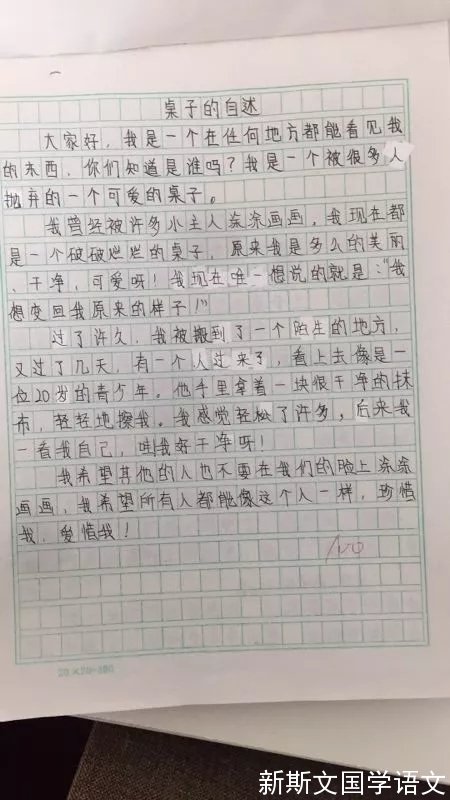 桌子的自述
大家好，我是一个在任何地方都能看见我
的东西，你们知道是谁吗？我是一个被很多人
抛弃的一个可爱的桌子。
我曾经被许多小主人涂涂画画，我现在都
是一个破破烂烂的桌子，原来我是多么的美丽
、干净，可爱呀！我现在唯一想说的就是：“我
想变回我原来的样子！”
过了许久，我被搬到了一个陌生的地方，
又过了几天，有一个人过来了，看上去像是一
位20岁的青少年。他手里拿着一块很干净的抹
布，轻轻地擦我。我感觉轻松了许多，后来我
一看我自己，哇我好干净呀！
我希望其他的人也不要在我们的脸上涂涂
画画，我希望所有人都能像这个人一样，珍惜
我，爱惜我！
20×20=400
新斯文国学语文